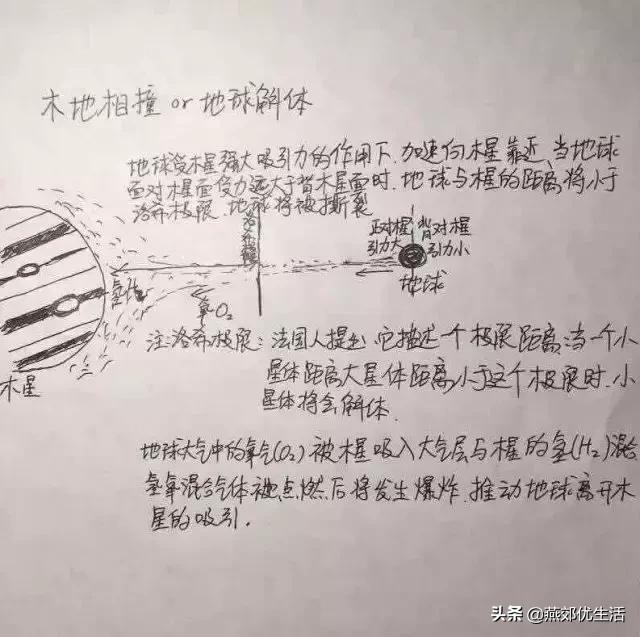 木地相撞 or 地球解体
地球受木星强大吸引力的作用下,加速向木星靠近、当地球
面对木星面受力远大于背木星面时.地球与木星的距离将小于
洛希极限.地球将被撕裂
洛希极限
正对木星
引力大
背对木星
引力小
地球
氢H₂
氧O₂
木星
注:洛希极限:法国人提出.它描述一个极限距离:当一个小
星体距离大星体距离小于这个极限时.小
星体将会解体.
地球大气中的氧气(O₂)被木星吸入大气层与木星的氢(H₂)混合
氢氧混合气体被点燃后将发生爆炸.推动地球离开木
星的吸引.
头条 @燕郊优生活